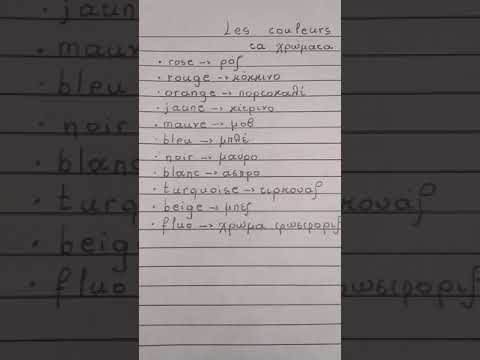 Les couleurs
τα χρωματα
• rose → ροζ
• rouge → κόκκινο
• orange → πορτοκαλί
• jaune → κίτρινο
• mauve → μοβ
• bleu → μπλέ
• noir → μαυρο
• blanc → ασπρο
• turquoise → τιρκουάζ
• beige → μπεζ
• fluo → χρωμα